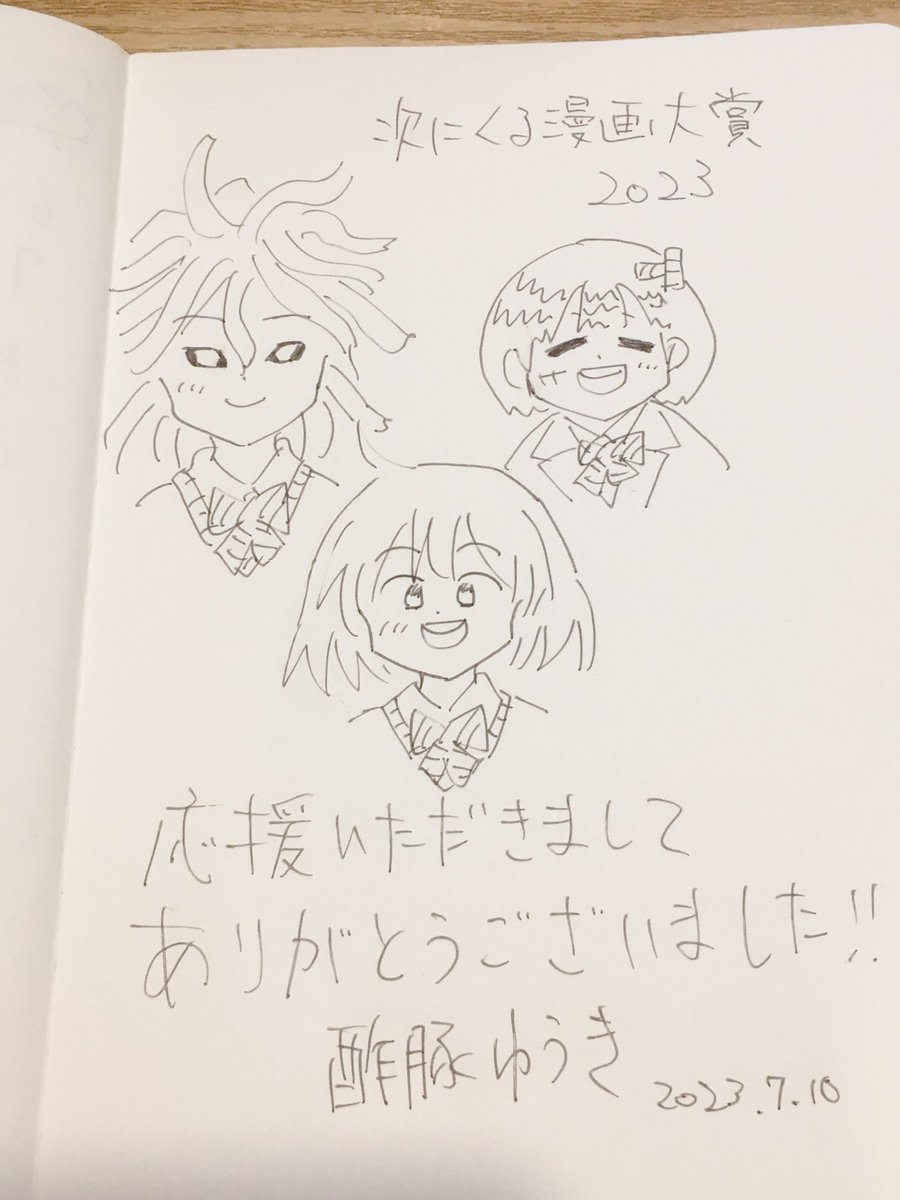 次にくる漫画大賞
2023
応援いただきまして
ありがとうございました!!
酢豚ゆうき
2023.7.10